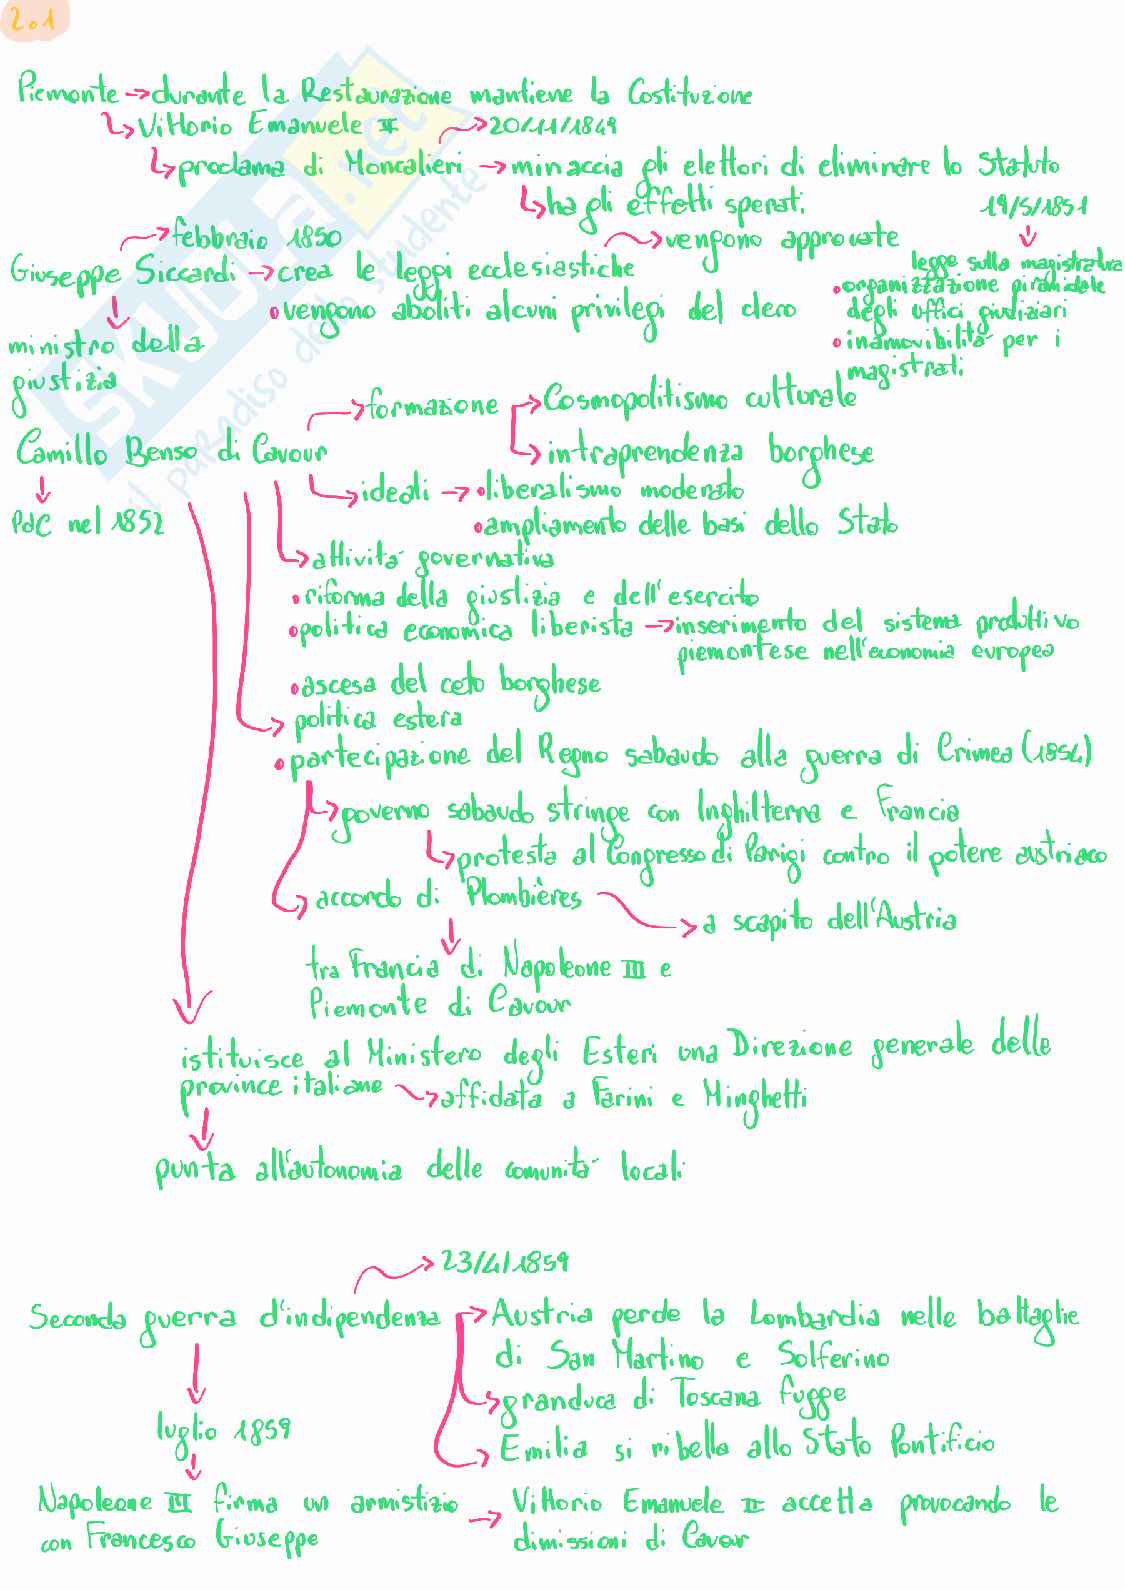 2.1
Piemonte → durante la Restaurazione mantiene la Costituzione
Vittorio Emanuele II
20/11/1849
proclama di Moncalieri → minaccia gli elettori di eliminare lo Statuto
ha gli effetti sperati
19/5/1851
febbraio 1850
vengono approvate
Giuseppe Siccardi → crea le leggi ecclesiastiche
legge sulla magistratura
• organizzazione piramidale
degli uffici giudiziari
• vengono aboliti alcuni privilegi del clero
ministro della
giustizia
• inamovibilità per i
magistrati
formazione
Cosmopolitismo culturale
Camillo Benso di Cavour
intraprendenza borghese
ideali → • liberalismo moderato
PdC nel 1852
• ampliamento delle basi dello Stato
attività governativa
• riforma della giustizia e dell'esercito
• politica economica liberista → inserimento del sistema produttivo
piemontese nell'economia europea
• ascesa del ceto borghese
politica estera
• partecipazione del Regno sabaudo alla guerra di Crimea (1854)
governo sabaudo stringe con Inghilterra e Francia
protesta al Congresso di Parigi contro il potere austriaco
accordo di Plombières
a scapito dell'Austria
tra Francia di Napoleone III e
Piemonte di Cavour
istituisce al Ministero degli Esteri una Direzione generale delle
province italiane
affidata a Farini e Minghetti
punta all'autonomia delle comunità locali
23/4/1859
Seconda guerra d'indipendenza
Austria perde la Lombardia nelle battaglie
di San Martino e Solferino
granduca di Toscana fugge
luglio 1859
Emilia si ribella allo Stato Pontificio
Napoleone III firma un armistizio
con Francesco Giuseppe
Vittorio Emanuele II accetta provocando le
dimissioni di Cavour
SKUOLA.net
il paradiso dello studente